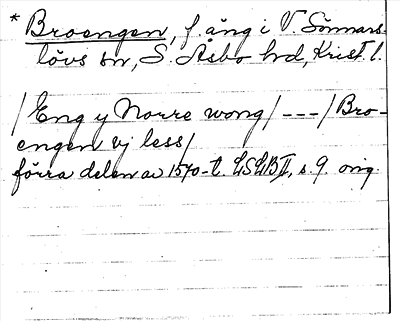 * Broengen, f. äng i V. Sönnars-
lövs sn, S. Åsbo hd, Krist. l.
/Eng y Norre wong/ ---/Bro-
engen vj less/
förra delen av 1570-t. LSLB II, s. 9. orig.